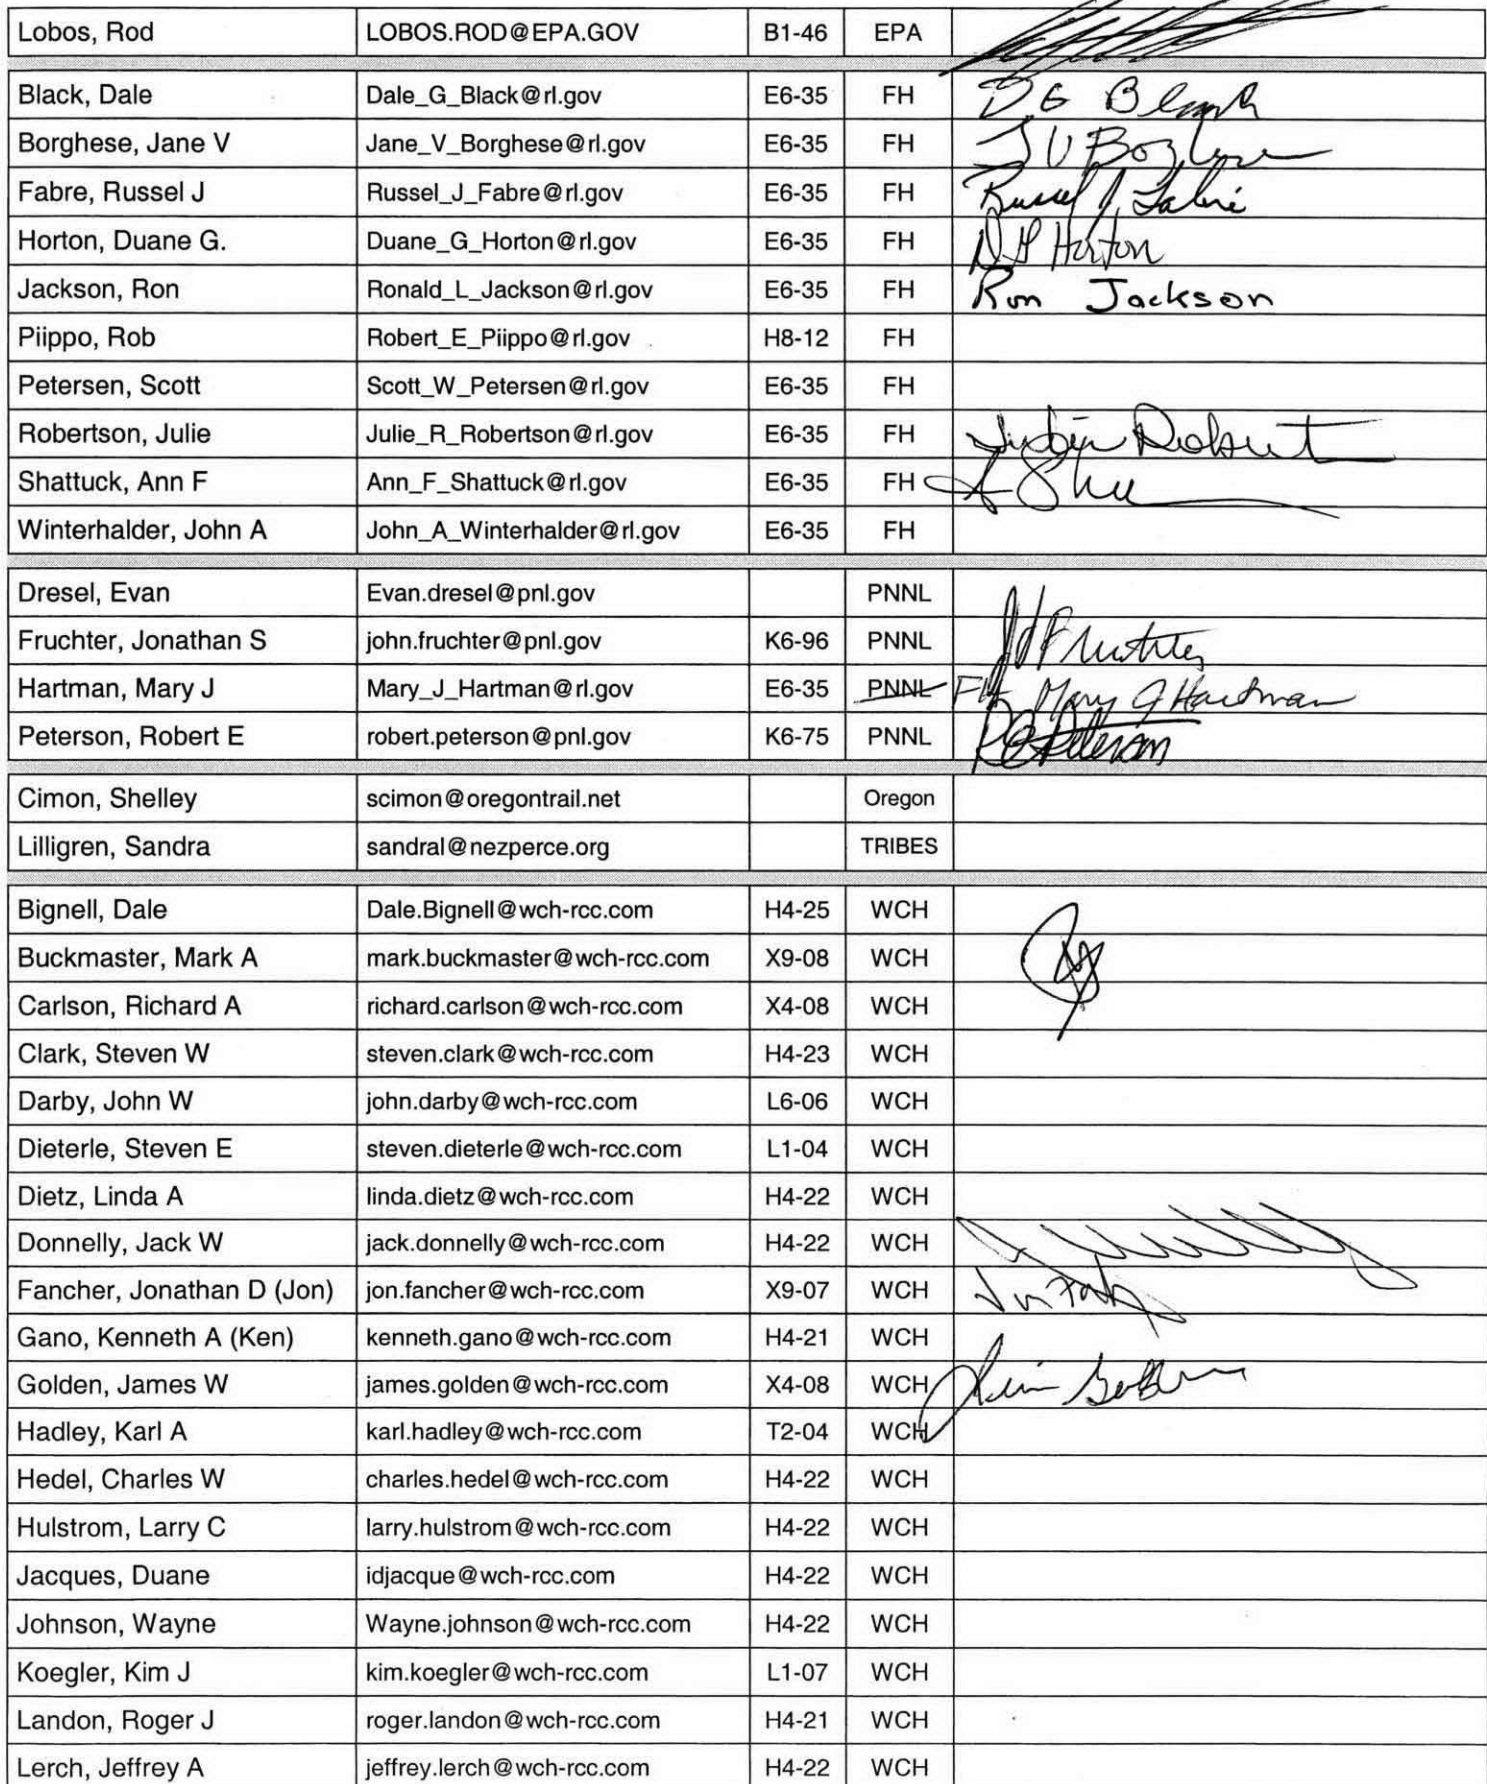 Lobos, Rod LOBOS.ROD@EPA.GOV B1-46 EPA
Black, Dale Dale_G_Black@rl.gov E6-35 FH D G Black
Borghese, Jane V Jane_V_Borghese@rl.gov E6-35 FH J V Borghese
Fabre, Russel J Russel_J_Fabre@rl.gov E6-35 FH Russel J Fabre
Horton, Duane G. Duane_G_Horton@rl.gov E6-35 FH D G Horton
Jackson, Ron Ronald_L_Jackson@rl.gov E6-35 FH Ron Jackson
Piippo, Rob Robert_E_Piippo@rl.gov H8-12 FH
Petersen, Scott Scott_W_Petersen@rl.gov E6-35 FH
Robertson, Julie Julie_R_Robertson@rl.gov E6-35 FH
Shattuck, Ann F Ann_F_Shattuck@rl.gov E6-35 FH
Winterhalder, John A John_A_Winterhalder@rl.gov E6-35 FH
Dresel, Evan Evan.dresel@pnl.gov PNNL
Fruchter, Jonathan S john.fruchter@pnl.gov K6-96 PNNL
Hartman, Mary J Mary_J_Hartman@rl.gov E6-35 PNNL FH Mary J Hartman
Peterson, Robert E robert.peterson@pnl.gov K6-75 PNNL R E Peterson
Cimon, Shelley scimon@oregontrail.net Oregon
Lilligren, Sandra sandral@nezperce.org TRIBES
Bignell, Dale Dale.Bignell@wch-rcc.com H4-25 WCH
Buckmaster, Mark A mark.buckmaster@wch-rcc.com X9-08 WCH
Carlson, Richard A richard.carlson@wch-rcc.com X4-08 WCH
Clark, Steven W steven.clark@wch-rcc.com H4-23 WCH
Darby, John W john.darby@wch-rcc.com L6-06 WCH
Dieterle, Steven E steven.dieterle@wch-rcc.com L1-04 WCH
Dietz, Linda A linda.dietz@wch-rcc.com H4-22 WCH
Donnelly, Jack W jack.donnelly@wch-rcc.com H4-22 WCH
Fancher, Jonathan D (Jon) jon.fancher@wch-rcc.com X9-07 WCH
Gano, Kenneth A (Ken) kenneth.gano@wch-rcc.com H4-21 WCH
Golden, James W james.golden@wch-rcc.com X4-08 WCH
Hadley, Karl A karl.hadley@wch-rcc.com T2-04 WCH
Hedel, Charles W charles.hedel@wch-rcc.com H4-22 WCH
Hulstrom, Larry C larry.hulstrom@wch-rcc.com H4-22 WCH
Jacques, Duane idjacque@wch-rcc.com H4-22 WCH
Johnson, Wayne Wayne.johnson@wch-rcc.com H4-22 WCH
Koegler, Kim J kim.koegler@wch-rcc.com L1-07 WCH
Landon, Roger J roger.landon@wch-rcc.com H4-21 WCH
Lerch, Jeffrey A jeffrey.lerch@wch-rcc.com H4-22 WCH